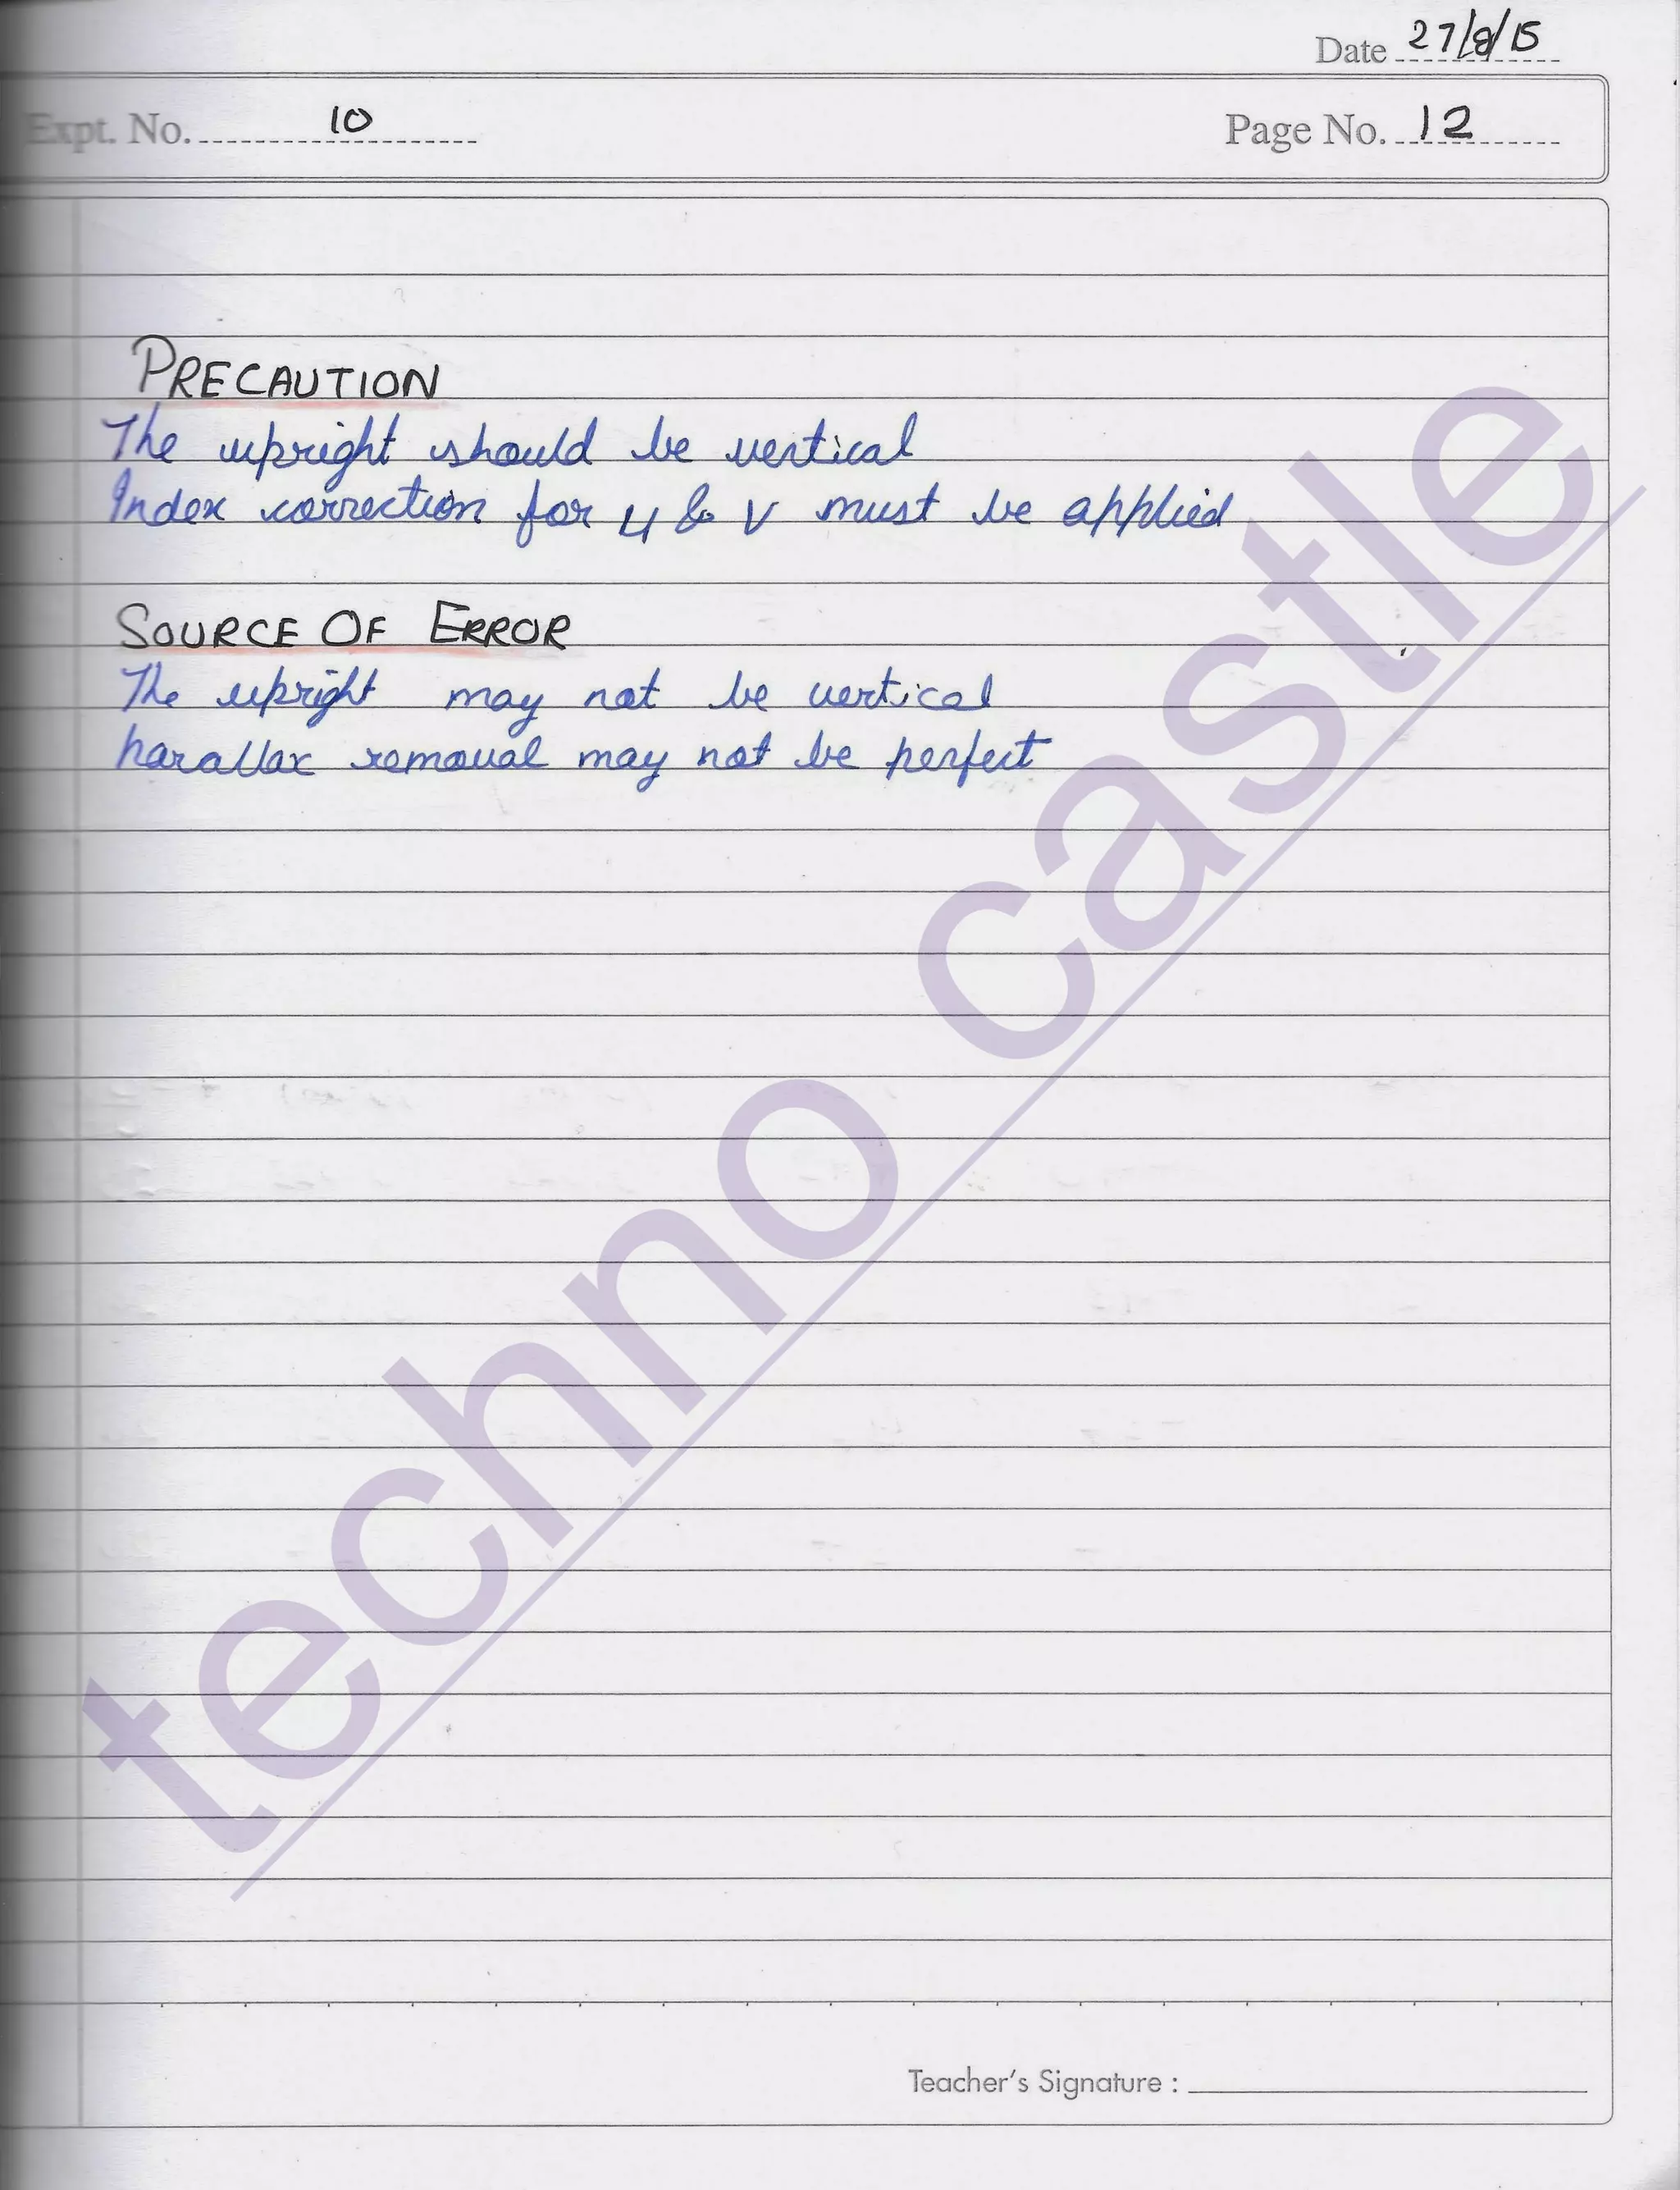 Date 27/8/15
Expt. No. 10
Page No. 12
PRECAUTION
The upright should be vertical
Index correction for u & v must be applied
SOURCE OF ERROR
The upright may not be vertical
parallax removal may not be perfect
techno castle
Teacher's Signature :